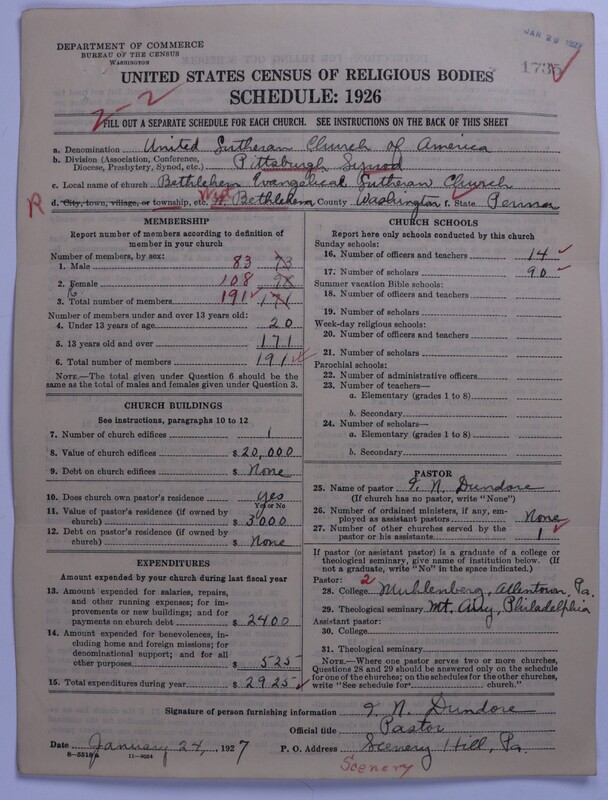 JAN 29 1927
DEPARTMENT OF COMMERCE
BUREAU OF THE CENSUS
WASHINGTON
1735
UNITED STATES CENSUS OF RELIGIOUS BODIES
SCHEDULE: 1926
2-2
FILL OUT A SEPARATE SCHEDULE FOR EACH CHURCH. SEE INSTRUCTIONS ON THE BACK OF THIS SHEET
a. Denomination United Lutheran Church of America
b. Division (Association, Conference,
Diocese, Presbytery, Synod, etc.) Pittsburgh Synod
c. Local name of church Bethlehem Evangelical Lutheran Church
R d. City, town, village, or township, etc. West W. Bethlehem County Washington f. State Penna
MEMBERSHIP
Report number of members according to definition of
member in your church
Number of members, by sex:
1. Male 83 73
2. Female 108 98
R
3. Total number of members 191 171
Number of members under and over 13 years old:
4. Under 13 years of age 20
5. 13 years old and over 171
6. Total number of members 191
NOTE.—The total given under Question 6 should be
same as the total of males and females given under Question 3.
CHURCH BUILDINGS
See instructions, paragraphs 10 to 12
7. Number of church edifices 1
8. Value of church edifices $ 20,000
9. Debt on church edifices $ None
10. Does church own pastor's residence yes
Yes or No
11. Value of pastor's residence (if owned by
church) $ 3000
12. Debt on pastor's residence (if owned by
church) $ None
EXPENDITURES
Amount expended by your church during last fiscal year
13. Amount expended for salaries, repairs,
and other running expenses; for im-
provements or new buildings; and for
payments on church debt $ 2400
14. Amount expended for benevolences, in-
cluding home and foreign missions; for
denominational support; and for all
other purposes $ 525
15. Total expenditures during year $ 2925
CHURCH SCHOOLS
Report here only schools conducted by this church
Sunday schools:
16. Number of officers and teachers 14
17. Number of scholars 90
Summer vacation Bible schools:
18. Number of officers and teachers
19. Number of scholars
Week-day religious schools:
20. Number of officers and teachers
21. Number of scholars
Parochial schools:
22. Number of administrative officers
23. Number of teachers—
a. Elementary (grades 1 to 8)
b. Secondary
24. Number of scholars—
a. Elementary (grades 1 to 8)
b. Secondary
PASTOR
25. Name of pastor I. N. Dundore
(If church has no pastor, write "None")
26. Number of ordained ministers, if any, em-
ployed as assistant pastors None
27. Number of other churches served by the
pastor or his assistants 1
If pastor (or assistant pastor) is a graduate of a college or
theological seminary, give name of institution below. (If
not a graduate, write "No" in the space indicated.)
Pastor: 2
28. College Muhlenberg, Allentown, Pa.
29. Theological seminary Mt. Airy, Philadelphia
Assistant pastor:
30. College
31. Theological seminary
NOTE.—Where one pastor serves two or more churches,
Questions 28 and 29 should be answered only on the schedule
for one of the churches; on the schedules for the other churches,
write "See schedule for church."
Signature of person furnishing information I. N. Dundore
Official title Pastor
Date January 24, 1927 P. O. Address Scenery Hill, Pa.
8-5518a 11-9034
Scenery